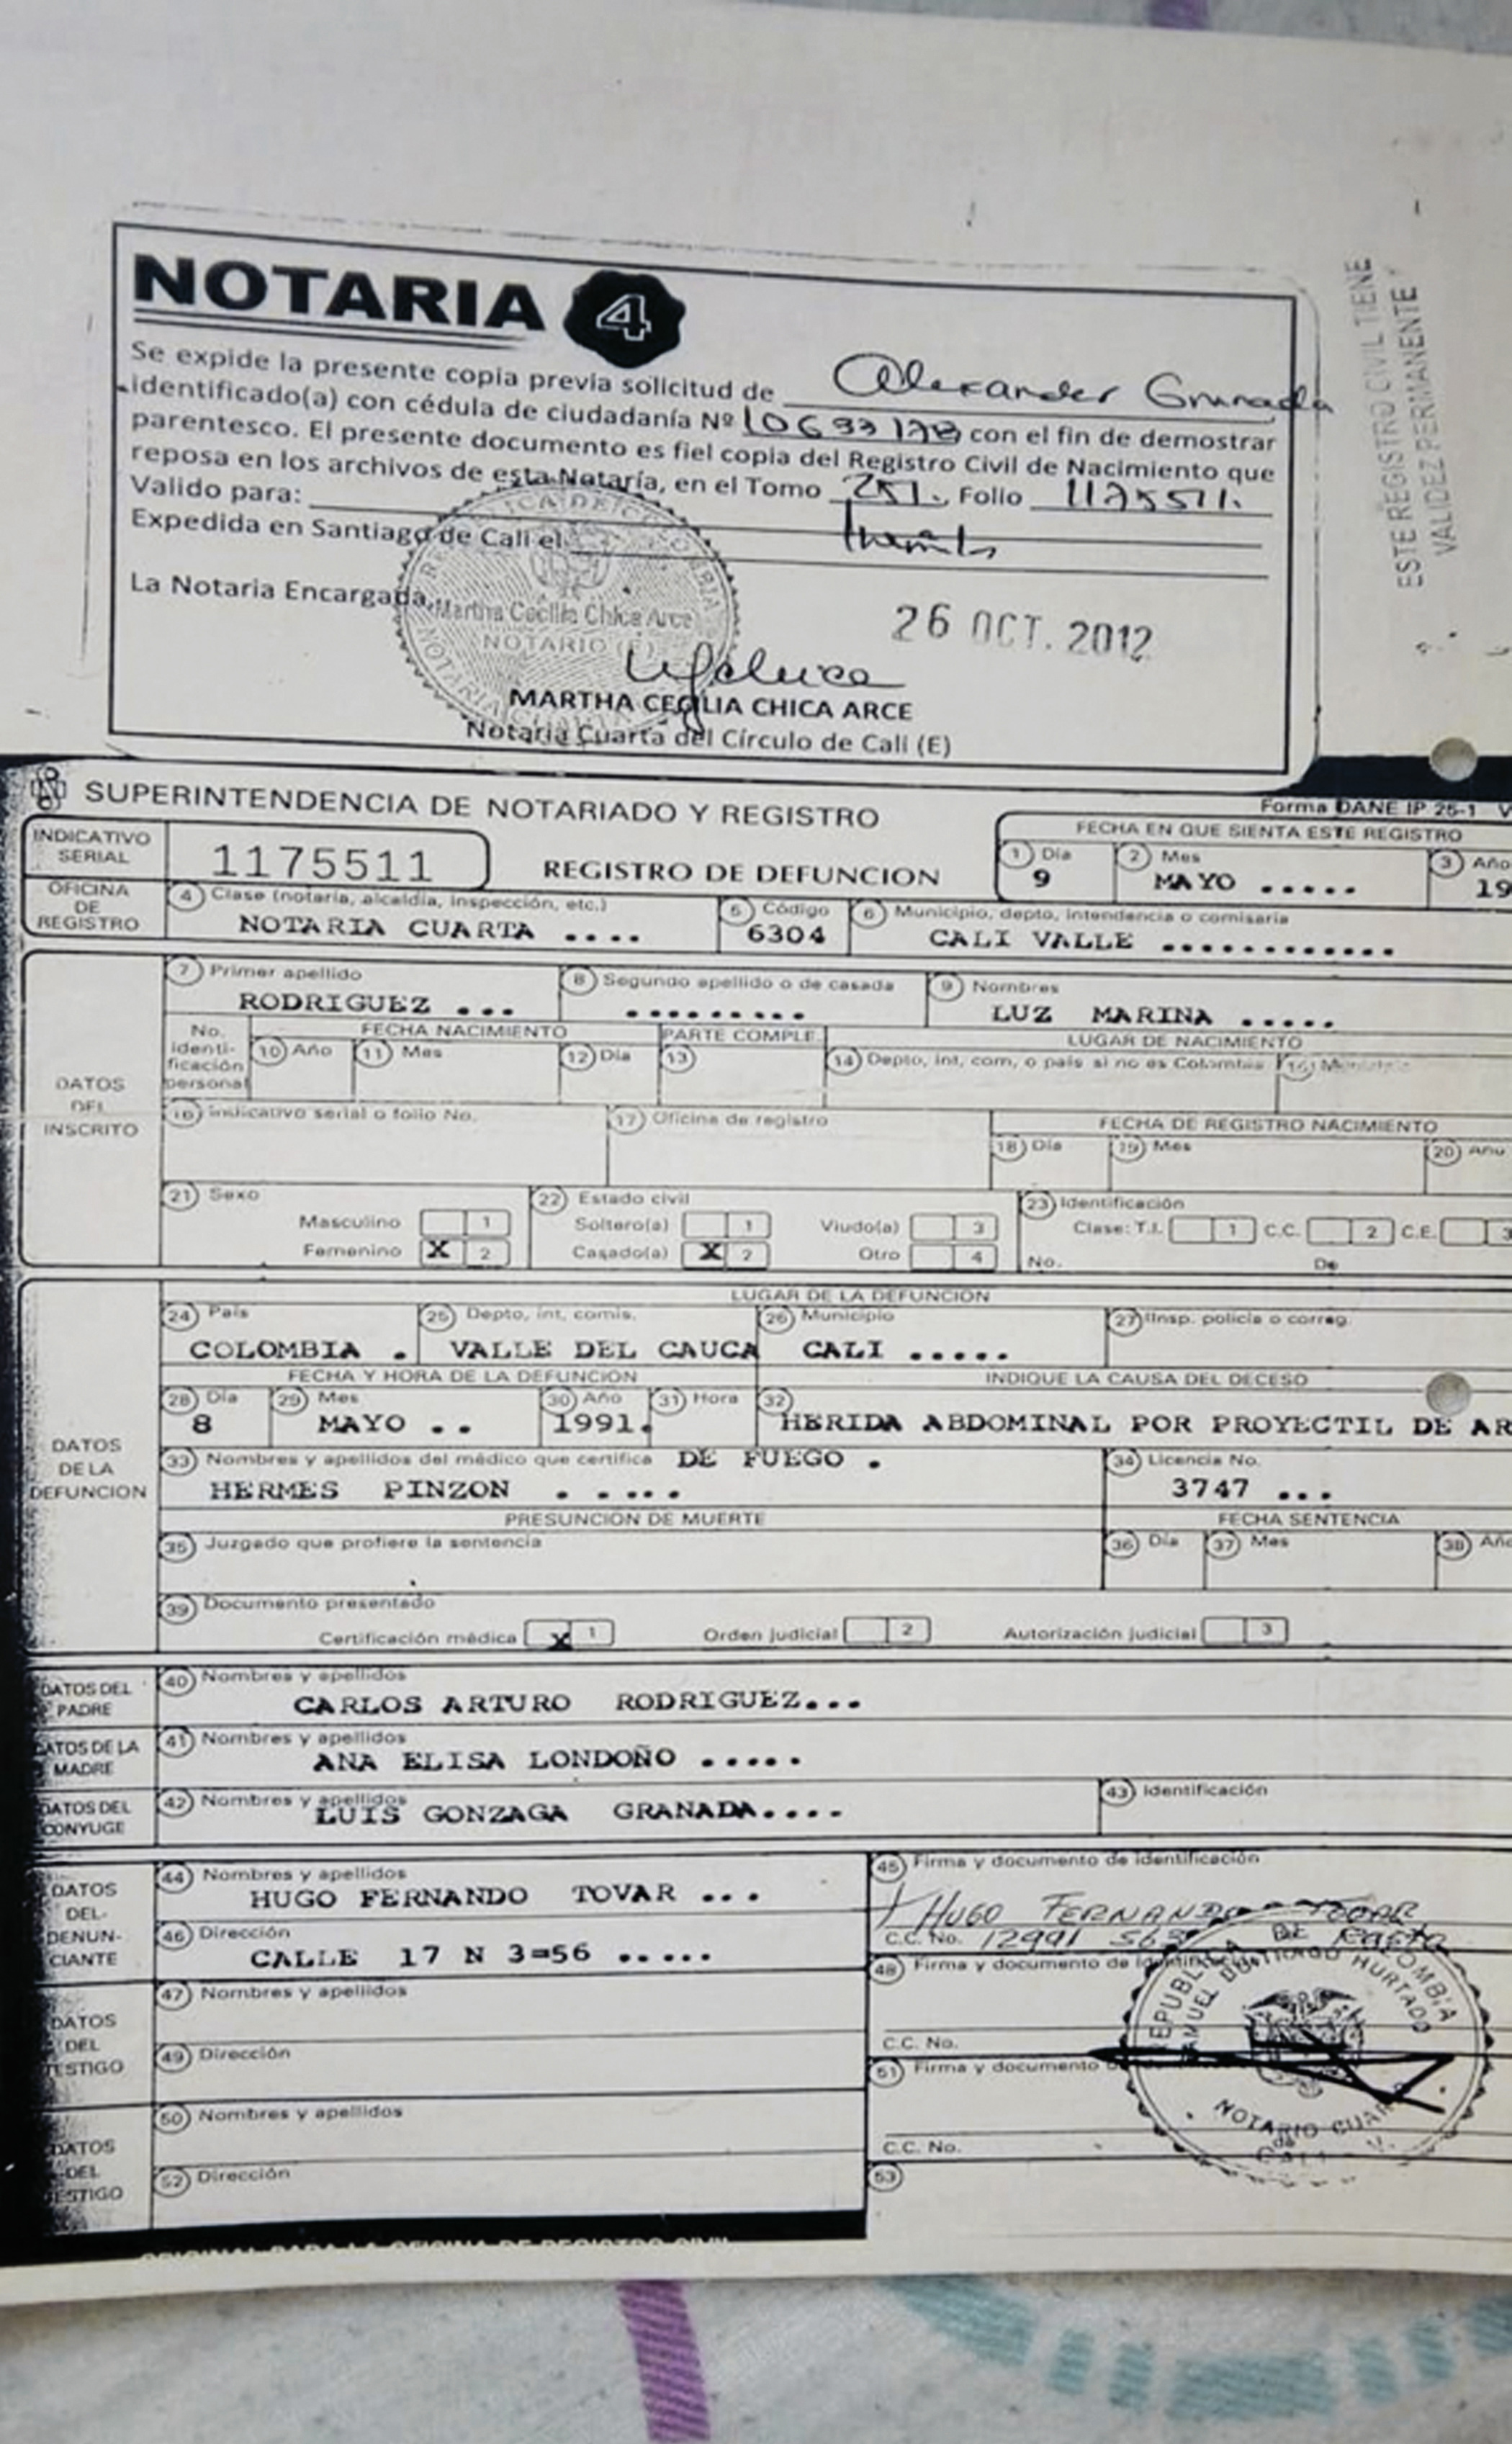 NOTARIA 4
Se expide la presente copia previa solicitud de Alexander Granada
identificado(a) con cédula de ciudadanía Nº con el fin de demostrar
parentesco. El presente documento es fiel copia del Registro Civil de Nacimiento que
reposa en los archivos de esta Notaría, en el Tomo 251. Folio 1175511.
Valido para:
Expedida en Santiago de Cali el
La Notaria Encargada,
Martha Cecilia Chica Arce
NOTARIO (E)
26 OCT. 2012
MARTHA CECILIA CHICA ARCE
Notaria Cuarta del Círculo de Cali (E)
ESTE REGISTRO CIVIL TIENE
VALIDEZ PERMANENTE
SUPERINTENDENCIA DE NOTARIADO Y REGISTRO
Forma DANE IP 25-1 V
INDICATIVO SERIAL 1175511
REGISTRO DE DEFUNCION
FECHA EN QUE SIENTA ESTE REGISTRO
1 Día 9 2 Mes MAYO ..... 3 Año 19
OFICINA DE REGISTRO
4 Clase (notaría, alcaldía, inspección, etc.) NOTARIA CUARTA ....
5 Código 6304
6 Municipio, depto, intendencia o comisaría CALI VALLE ............
DATOS DEL INSCRITO
7 Primer apellido RODRIGUEZ ...
8 Segundo apellido o de casada .........
9 Nombres LUZ MARINA .....
No. identificación personal
FECHA NACIMIENTO
10 Año 11 Mes 12 Día
PARTE COMPLE.
13
LUGAR DE NACIMIENTO
14 Depto, int, com, o país si no es Colombia 15 Municipio
16 Indicativo serial o folio No. 17 Oficina de registro
FECHA DE REGISTRO NACIMIENTO
18 Día 19 Mes 20 Año
21 Sexo
Masculino 1
Femenino X 2
22 Estado civil
Soltero(a) 1 Viudo(a) 3
Casado(a) X 2 Otro 4
23 Identificación
Clase: T.I. 1 C.C. 2 C.E. 3
No. De
DATOS DE LA DEFUNCION
LUGAR DE LA DEFUNCION
24 País COLOMBIA .
25 Depto, int, comis. VALLE DEL CAUCA
26 Municipio CALI .....
27 Insp. policía o correg.
FECHA Y HORA DE LA DEFUNCION
28 Día 8 29 Mes MAYO .. 30 Año 1991. 31 Hora
INDIQUE LA CAUSA DEL DECESO
32 HERIDA ABDOMINAL POR PROYECTIL DE AR
DE FUEGO .
33 Nombres y apellidos del médico que certifica
HERMES PINZON . . ...
34 Licencia No. 3747 ...
PRESUNCION DE MUERTE
FECHA SENTENCIA
35 Juzgado que profiere la sentencia
36 Día 37 Mes 38 Año
39 Documento presentado
Certificación médica X 1 Orden judicial 2 Autorización judicial 3
DATOS DEL PADRE
40 Nombres y apellidos
CARLOS ARTURO RODRIGUEZ...
DATOS DE LA MADRE
41 Nombres y apellidos
ANA ELISA LONDOÑO .....
DATOS DEL CONYUGE
42 Nombres y apellidos
LUIS GONZAGA GRANADA....
43 Identificación
DATOS DEL DENUN-CIANTE
44 Nombres y apellidos
HUGO FERNANDO TOVAR ...
45 Firma y documento de identificación
HUGO FERNANDO TOVAR
C.C. No.
46 Dirección
CALLE 17 N 3=56 .....
DATOS DEL TESTIGO
47 Nombres y apellidos
48 Firma y documento de identificación
C.C. No.
49 Dirección
DATOS DEL TESTIGO
50 Nombres y apellidos
51 Firma y documento
C.C. No.
52 Dirección
53
REPUBLICA DE COLOMBIA
HURTADO
NOTARIO CUARTO
ORIGINAL PARA LA OFICINA DE REGISTRO CIVIL